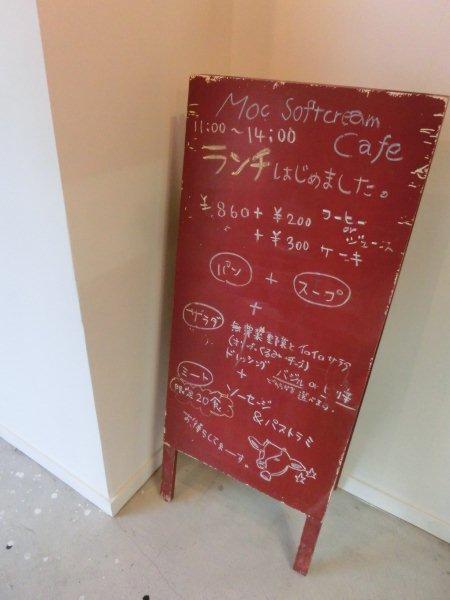 Moc Softcream
Cafe
11:00〜14:00
ランチはじめました。
¥860+¥200 コーヒー
or
ジュース
+¥300 ケーキ
パン + スープ
+
サラダ 無農薬野菜とイロイロサラダ
ドレッシング バジル or
+
ミート ソーセージ
&パストラミ
限定20食
お待ちしてまーす。